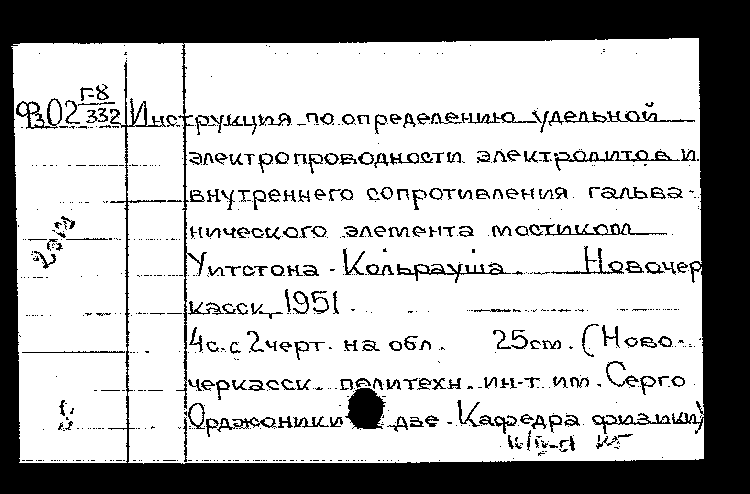 Г-8
Фз02 332 Инструкция по определению удельной
электропроводности электролитов и
внутреннего сопротивления гальва-
нического элемента мостиком
Уитстона - Кольрауша. Новочер
касск, 1951.
4с. с 2черт. на обл. 25см. (Ново-
черкасск. политехн. ин-т им. Серго
Орджоники дзе. Кафедра физики)